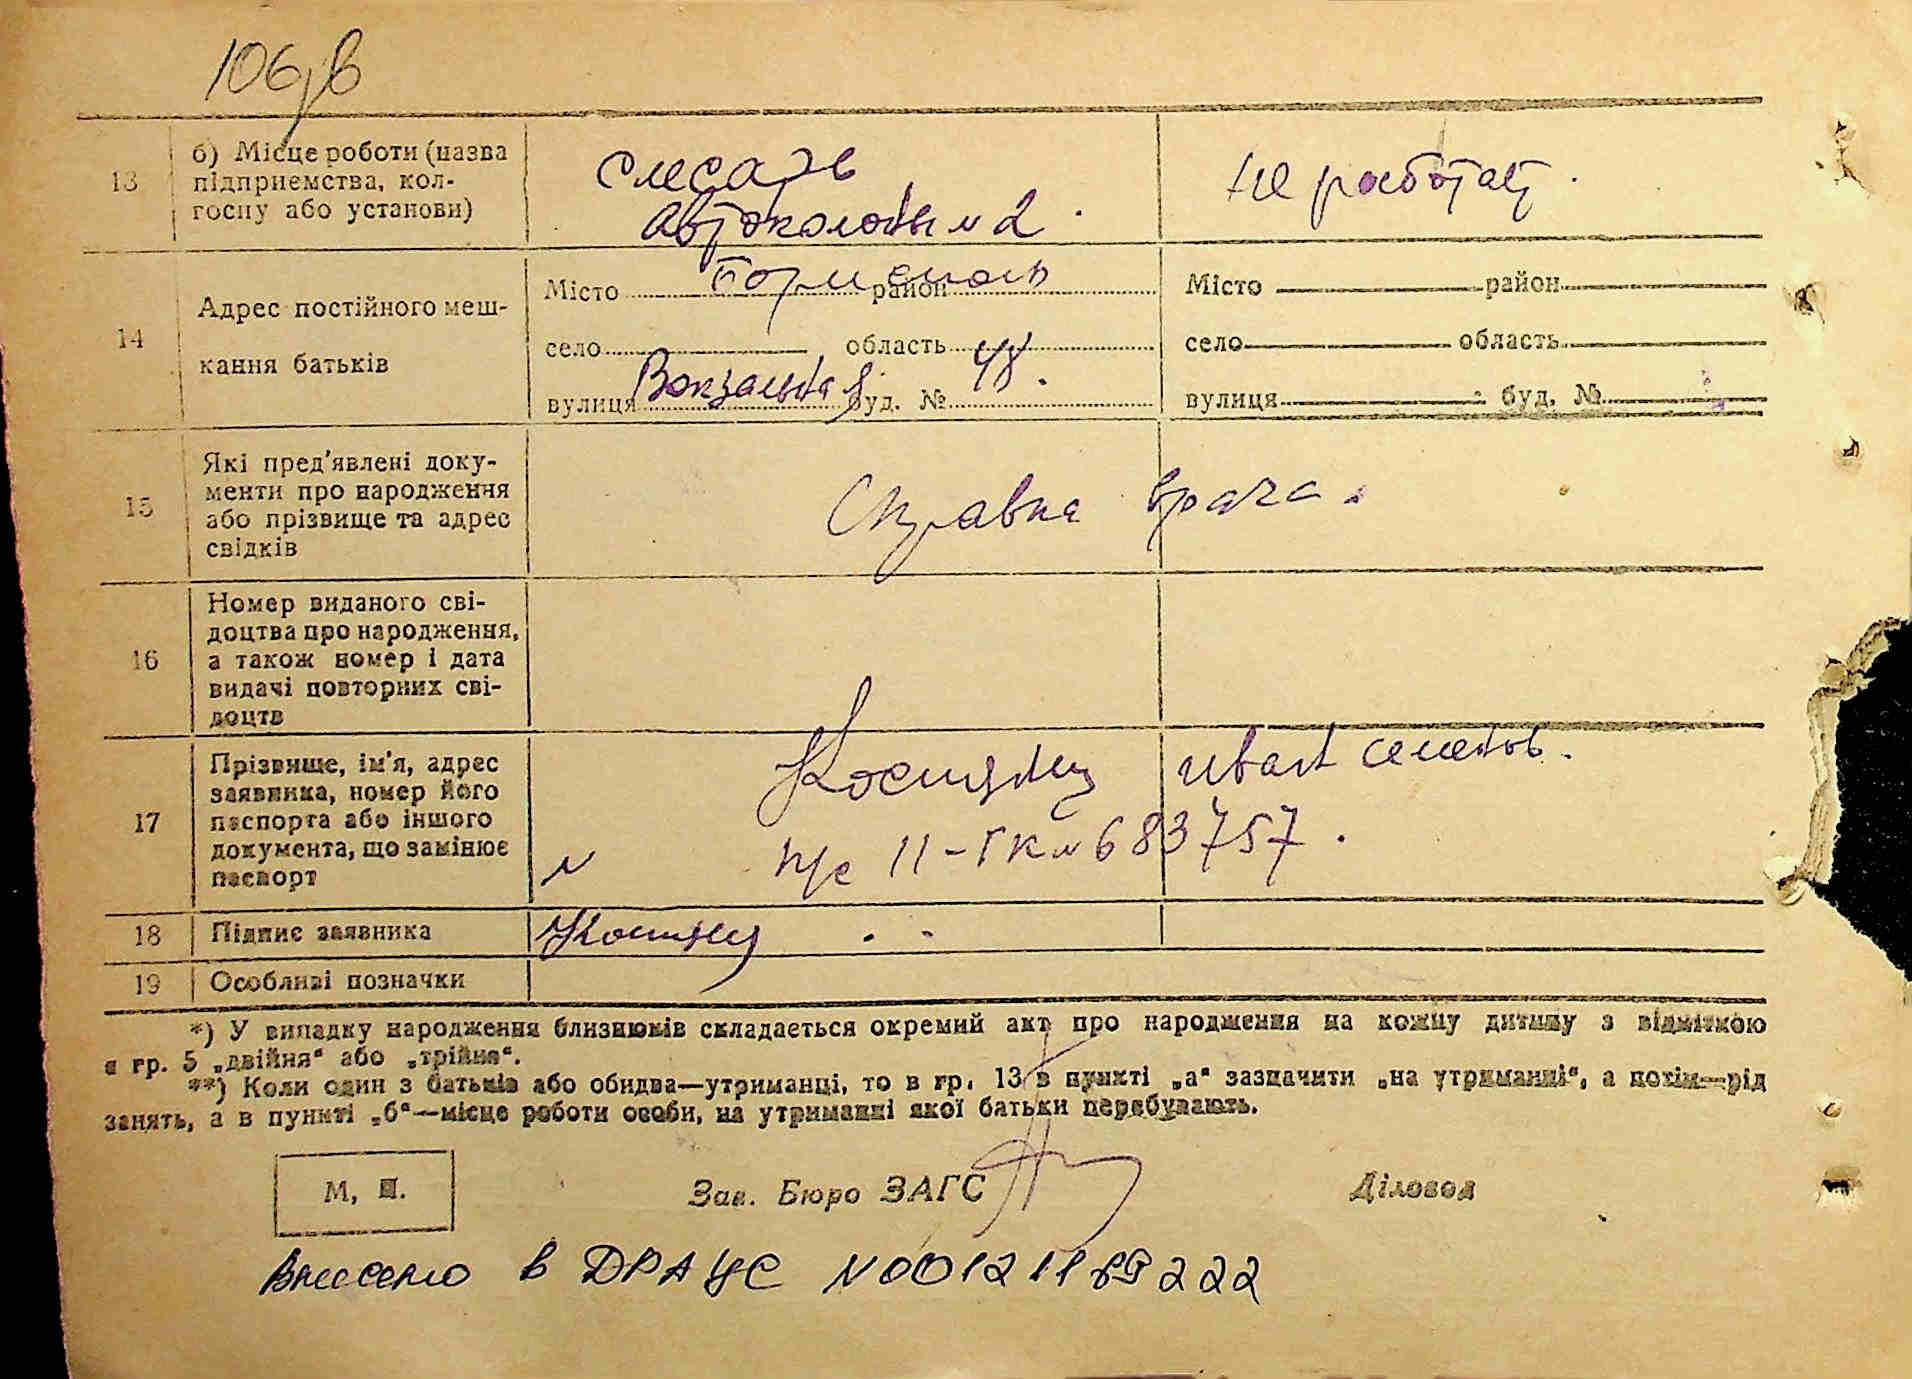 106
13
б) Місце роботи (назва
підприємства, кол-
госпу або установи)
слесарь
автоколоны № 2.
не работает.
14
Адрес постійного меш-
кання батьків
Місто Борисполь район
село область
вулиця Вокзальная буд. № 48.
Місто район
село область
вулиця буд. №
15
Які пред'явлені доку-
менти про народження
або прізвище та адрес
свідків
Справка врача.
16
Номер виданого сві-
доцтва про народження,
а також номер і дата
видачі повторних сві-
доцтв
17
Прізвище, ім'я, адрес
заявника, номер його
паспорта або іншого
документа, що замінює
паспорт
Иван Семенов.
II-ГК № 683757.
18
Підпис заявника
19
Особливі позначки
*) У випадку народження близнюків складається окремий акт про народження на кожну дитину з відміткою
в гр. 5 „двійня“ або „трійня“.
**) Коли один з батьків або обидва—утриманці, то в гр. 13 в пункті „а“ зазначити „на утриманні“, а потім—рід
занять, а в пункті „б“—місце роботи особи, на утриманні якої батьки перебувають.
М. П.
Зав. Бюро ЗАГС
Діловод
Внесено в ДРАЦС №00121169222